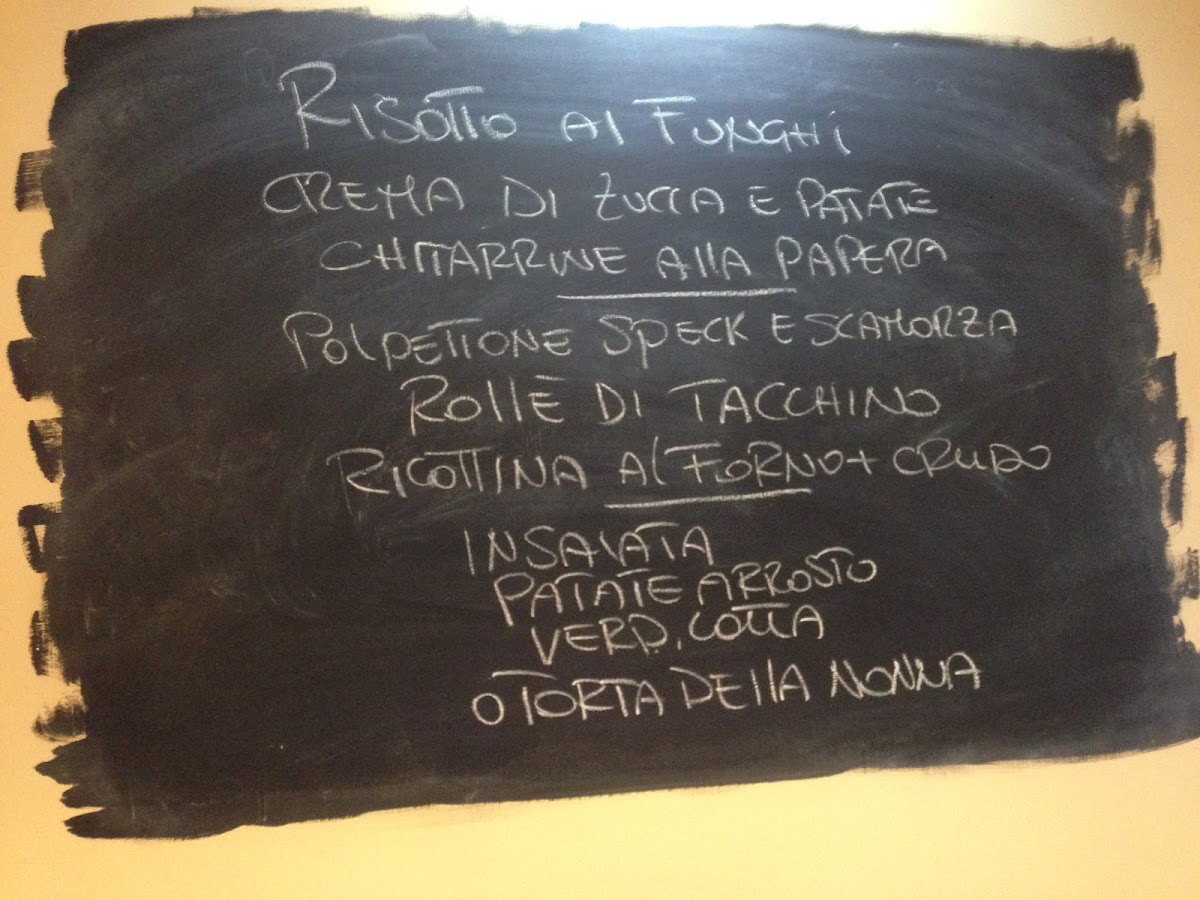 RISOTTO AI FUNGHi
CREMA DI ZUCCA E PATATE
CHITARRINE AllA PAPERA
POlPETTONE SPECK E SCAMORZA
ROLLÈ DI TACCHINO
RICOTTINA Al FORNO + CRUDO
INSALATA
PATATE ARROSTO
VERD. COTTA
O TORTA DEllA NONNA